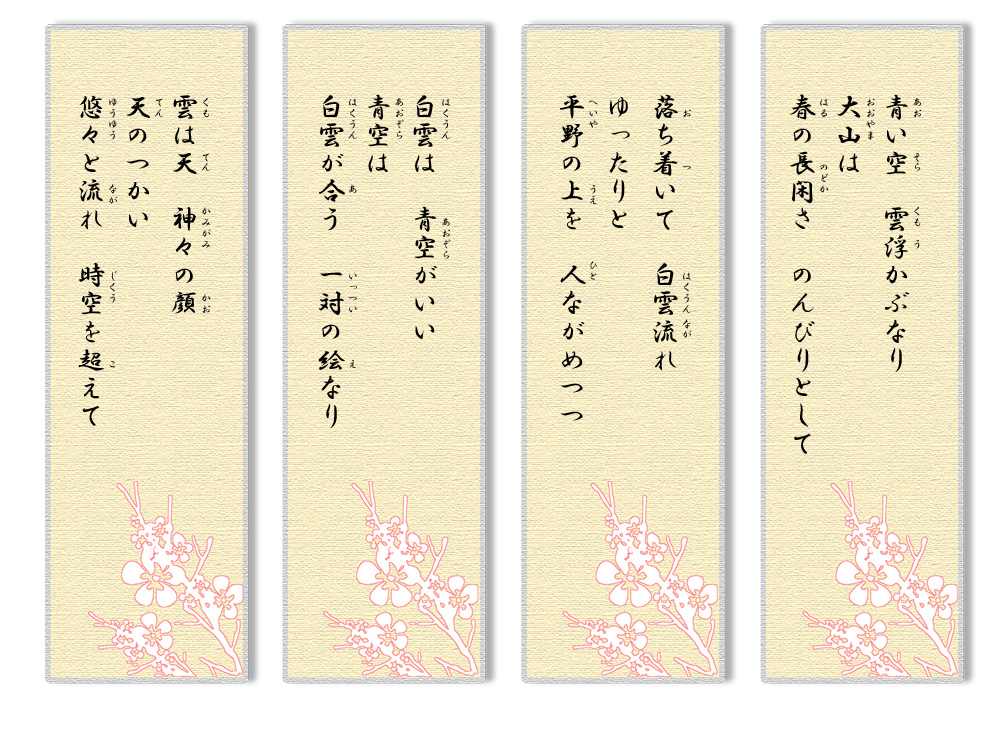 青い空　雲浮かぶなり
大山は
春の長閑さ　のんびりとして
落ち着いて　白雲流れ
ゆったりと
平野の上を　人ながめつつ
白雲は　青空がいい
青空は
白雲が合う　一対の絵なり
雲は天　神々の顔
天のつかい
悠々と流れ　時空を超えて